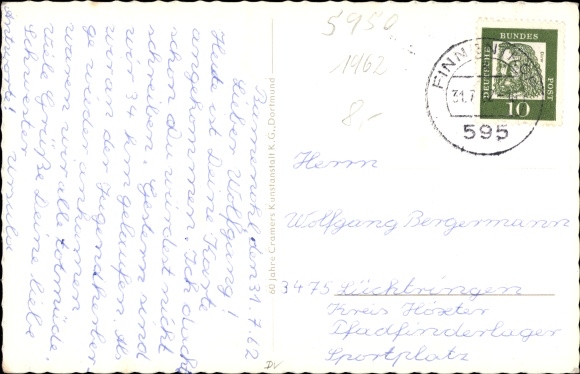 den 31.7.62
Lieber Wolfgang!
Heute ist Deine Karte
angekommen. Ich dachte
schon Du würdest nicht
schreiben. Gestern sind
wir 34 km gelaufen. Als
wir an der Jugendherber
ge wieder ankamen
waren wir alle totmüde.
Viele Grüße Deine liebe
Schwester Ursula
60 Jahre Cramers Kunstanstalt K.G., Dortmund
5950
1462
8,-
DEUTSCHE BUNDES POST
10
FINN
31.7
595
Herrn
Wolfgang Bergermann
3475 Lüchtringen
Kreis Höxter
Pfadfinderlager
Sportplatz
DV